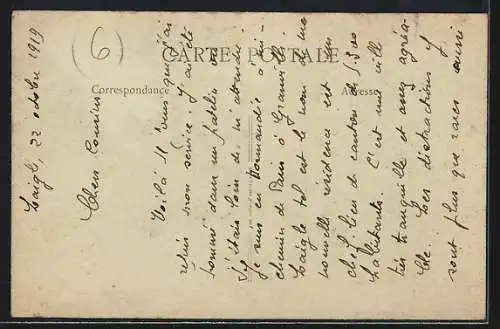 6
CARTE POSTALE
Correspondance
Adresse
Laigle, 22 octobre 1919
Chers Cousins
Voilà 11 jours que j'ai
repris mon service. J'ai été
nommé dans un patelin où
j'étais loin de m'attendre.
Je suis en Normandie à mi-
chemin de Paris à Granville
Laigle tel est le nom de ma
nouvelle résidence est un
chef-lieu de canton de 5.300
habitants. C'est une ville
très tranquille et assez agréa-
ble. Les distractions y
sont plus que rares aussi